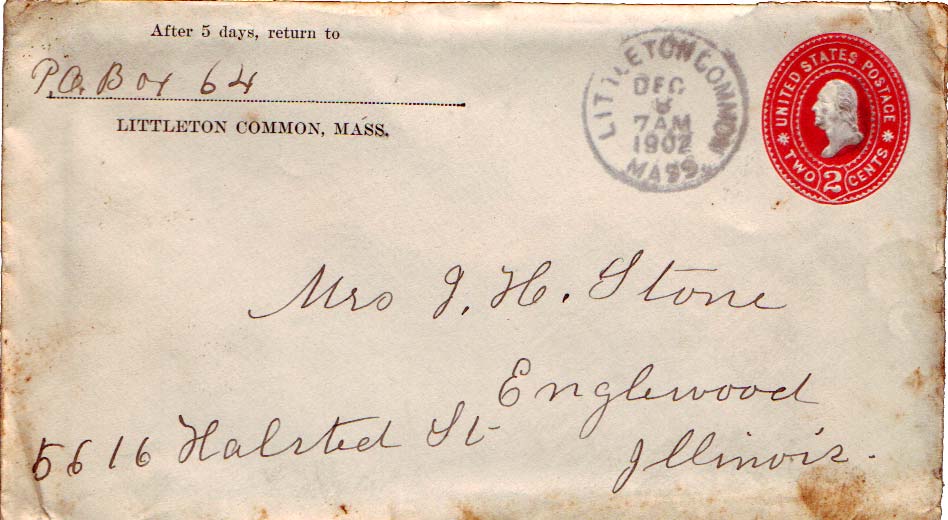 After 5 days, return to
P.O. Box 64
LITTLETON COMMON, MASS.
LITTLETON COMMON
DEC
8
7 AM
1902
MASS.
UNITED STATES POSTAGE
TWO 2 CENTS
Mrs J. H. Stone
Englewood
5616 Halsted St
Illinois.